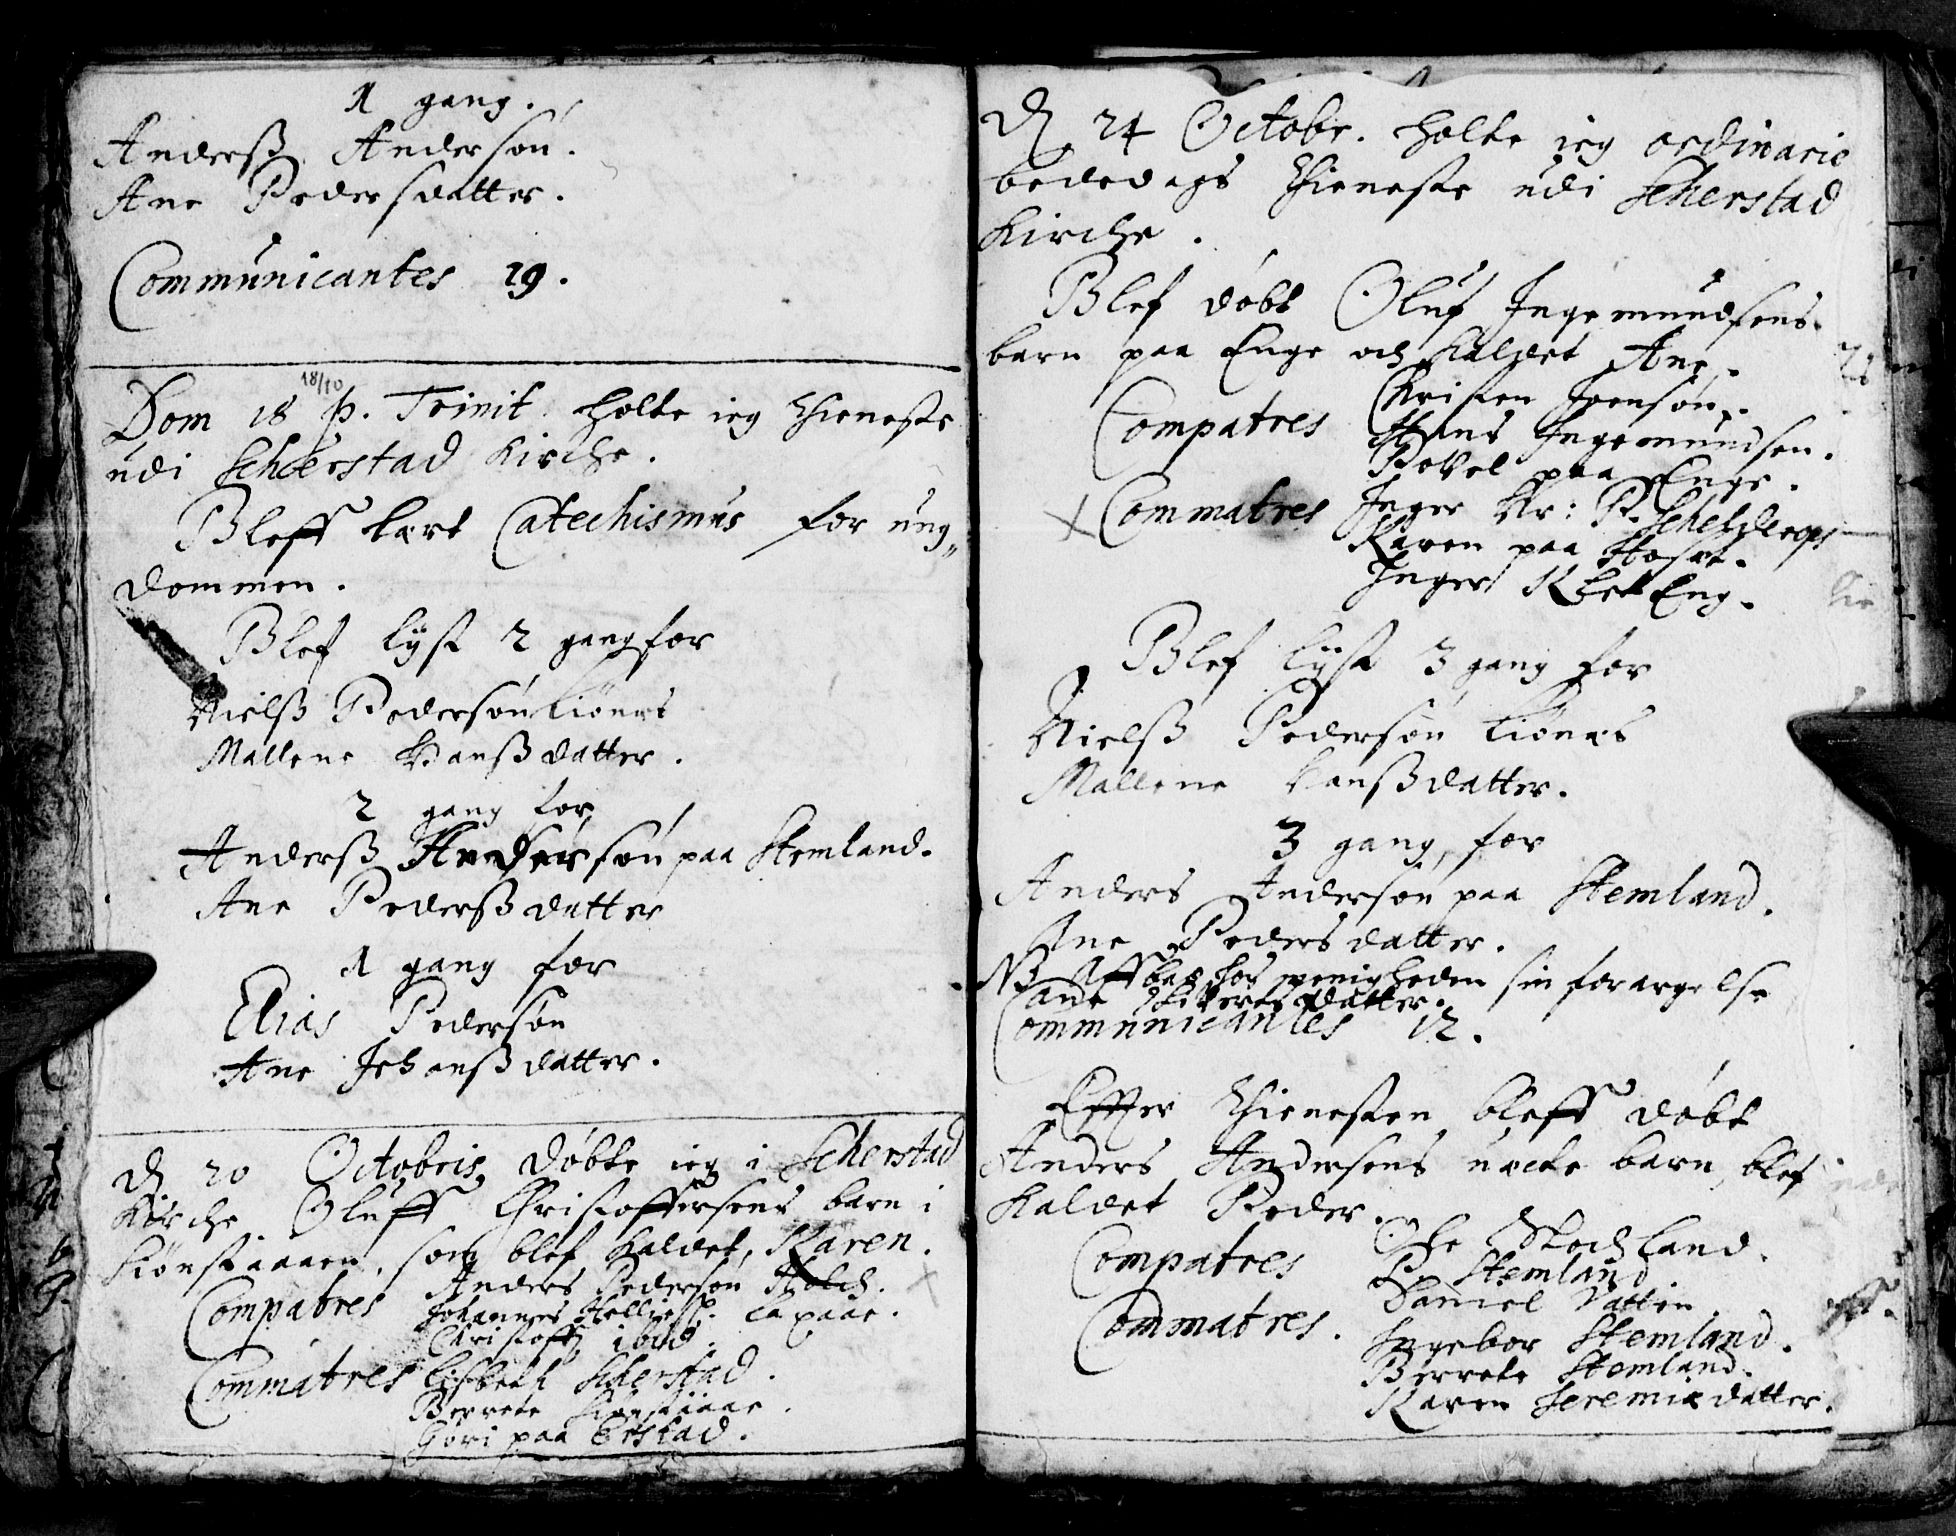 1 gang.
Anderß Andersøn.
Ane Pedersdatter.
Communicantes 19.
18/10
Dom 18 p. Trinit. holte ieg thieneste
udi Scherstad Kirche.
Bleff lært Catechismus for ung„
dommen.
Blef lyst 2 gang for
Nielß Pedersøn
Mallene Hanßdatter.
2 gang for
Anderß Andersøn paa Stemland.
Ane Pederßdatter
1 gang for
Elias Pedersøn
Ane Johanßdatter.
D 20 Octobris døbte ieg i Scherstad
Kirche Oluff Christoffersens barn i
som blef kaldet, Karen.
Compatres Anders Pedersøn
Johannes
Christoff ibid.
Commatres Lisbeth Scherstad.
Berrete
Gøri paa
D 24 Octobr. holte ieg ordinarie
bededags thieneste udi Scherstad
Kirche.
Blef døbt Oluf Ingemundsens
barn paa Enge och kaldet Ane.
Compatres Christen Joensøn.
Hans Ingemundsen.
Povel paa Enge.
Commatres Inger
Karen paa
Inger Eng.
Blef lyst 3 gang for
Nielß Pedersøn
Mallene Hanßdatter.
3 gang for
Anders Andersøn paa Stemland.
Ane Pedersdatter.
NB Affbad hos menigheden sin forargelse
datter.
Communicantes 12.
Effter thienesten bleff døbt
Anders Andersens barn, blef
kaldet Peder.
Compatres Ofe
P. Stemland
Daniel
Commatres. Ingebor Stemland.
Berrete Stemland.
Karen Jeremiædatter.